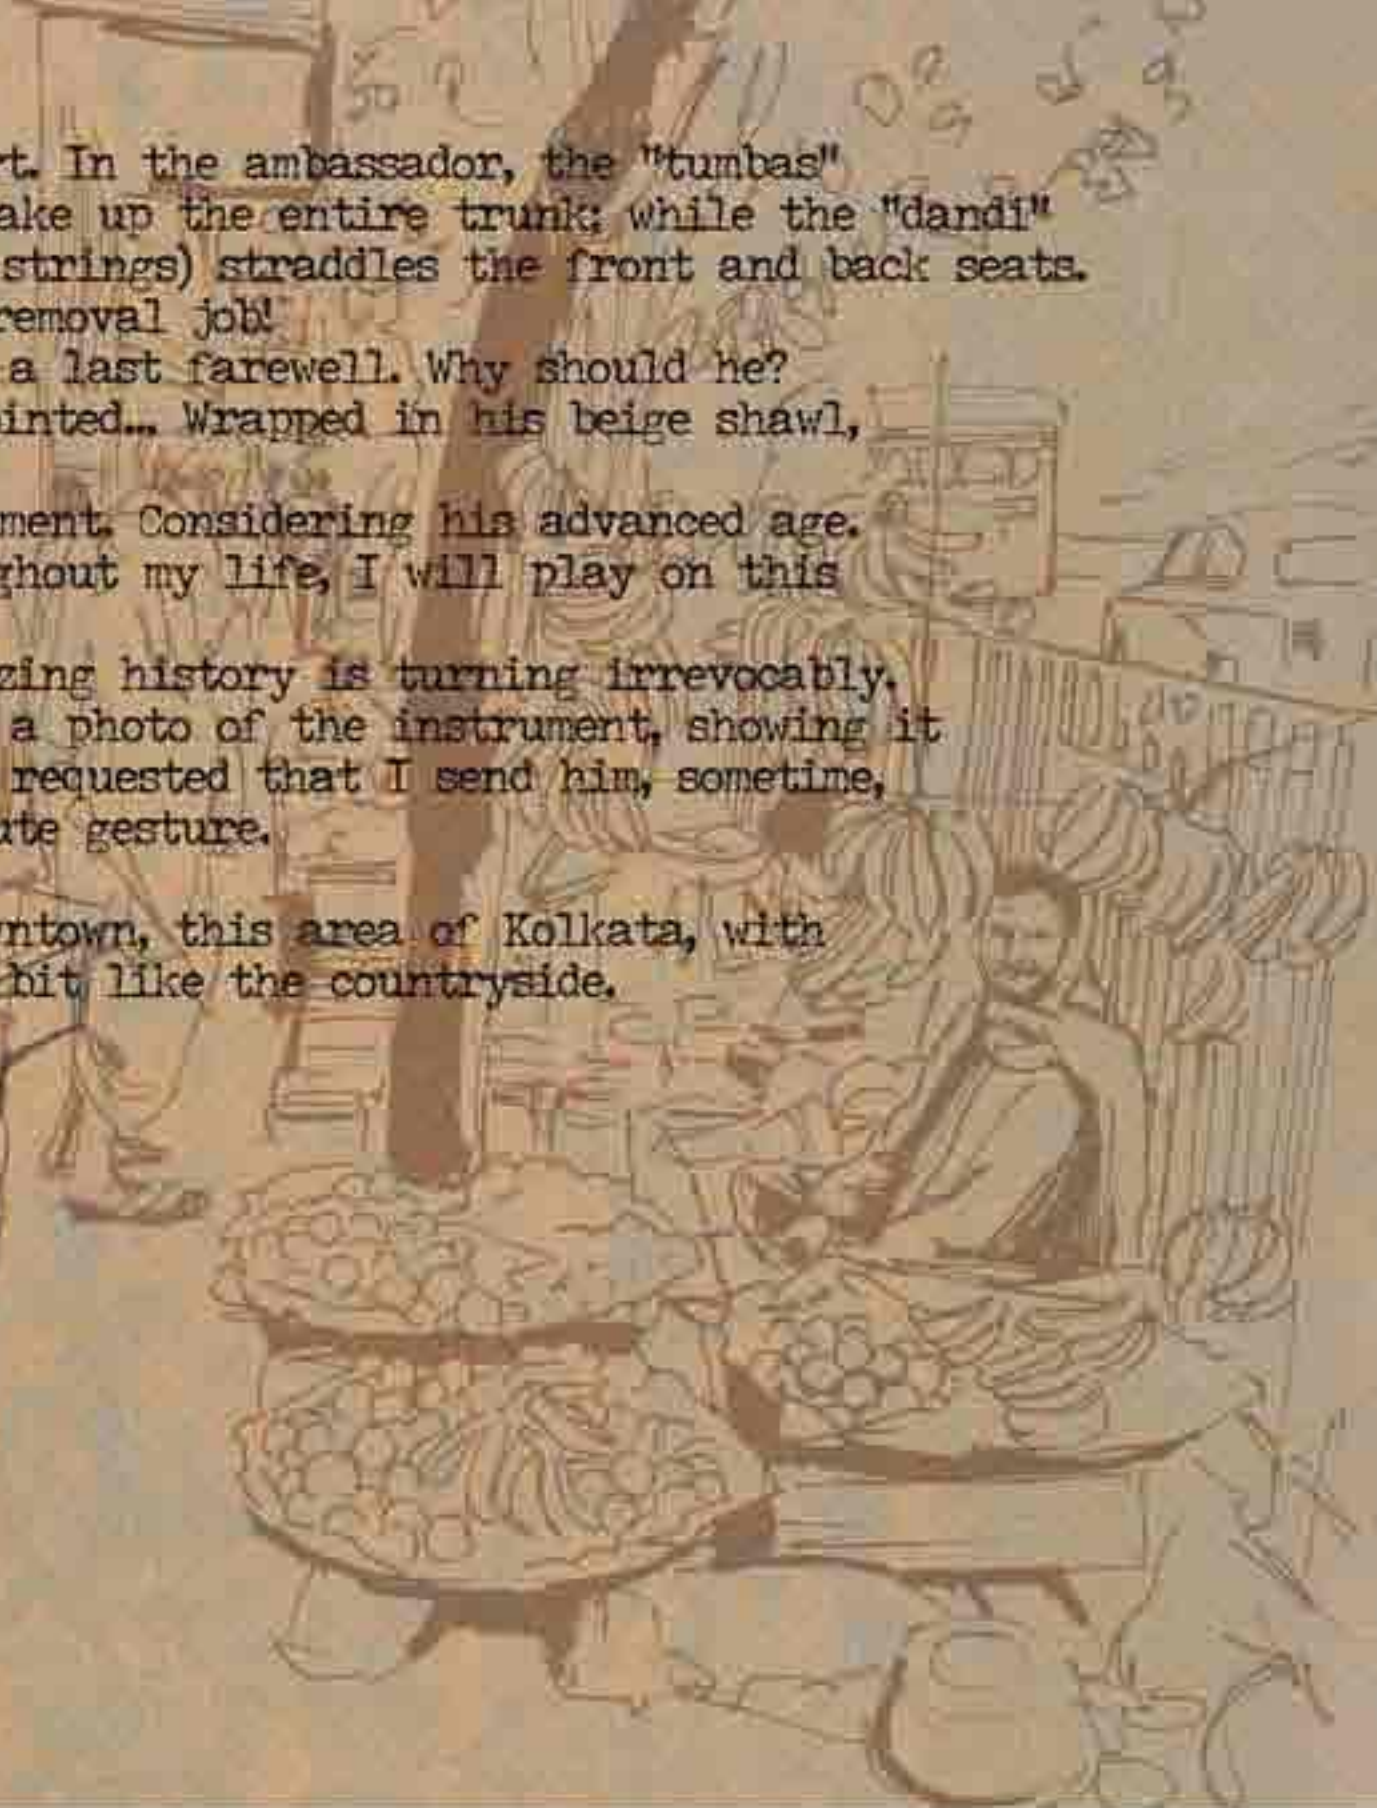 rt. In the ambassador, the "tumbas"
ake up the entire trunk; while the "dandi"
strings) straddles the front and back seats.
removal job!
a last farewell. Why should he?
inted... Wrapped in his beige shawl,
ment. Considering his advanced age.
ghout my life, I will play on this
zing history is turning irrevocably.
a photo of the instrument, showing it
requested that I send him, sometime,
ute gesture.
wntown, this area of Kolkata, with
bit like the countryside.